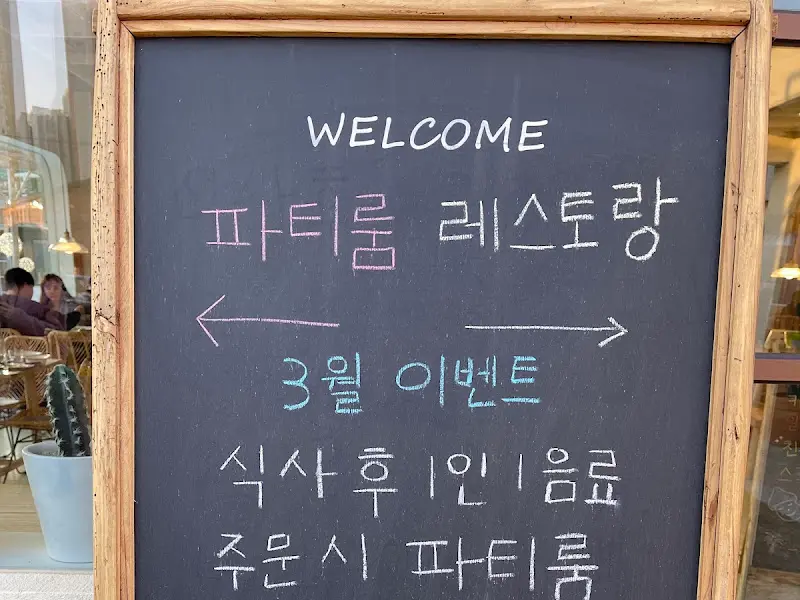 WELCOME
파티룸 레스토랑
← →
3월 이벤트
식사 후 1인 1음료
주문 시 파티룸